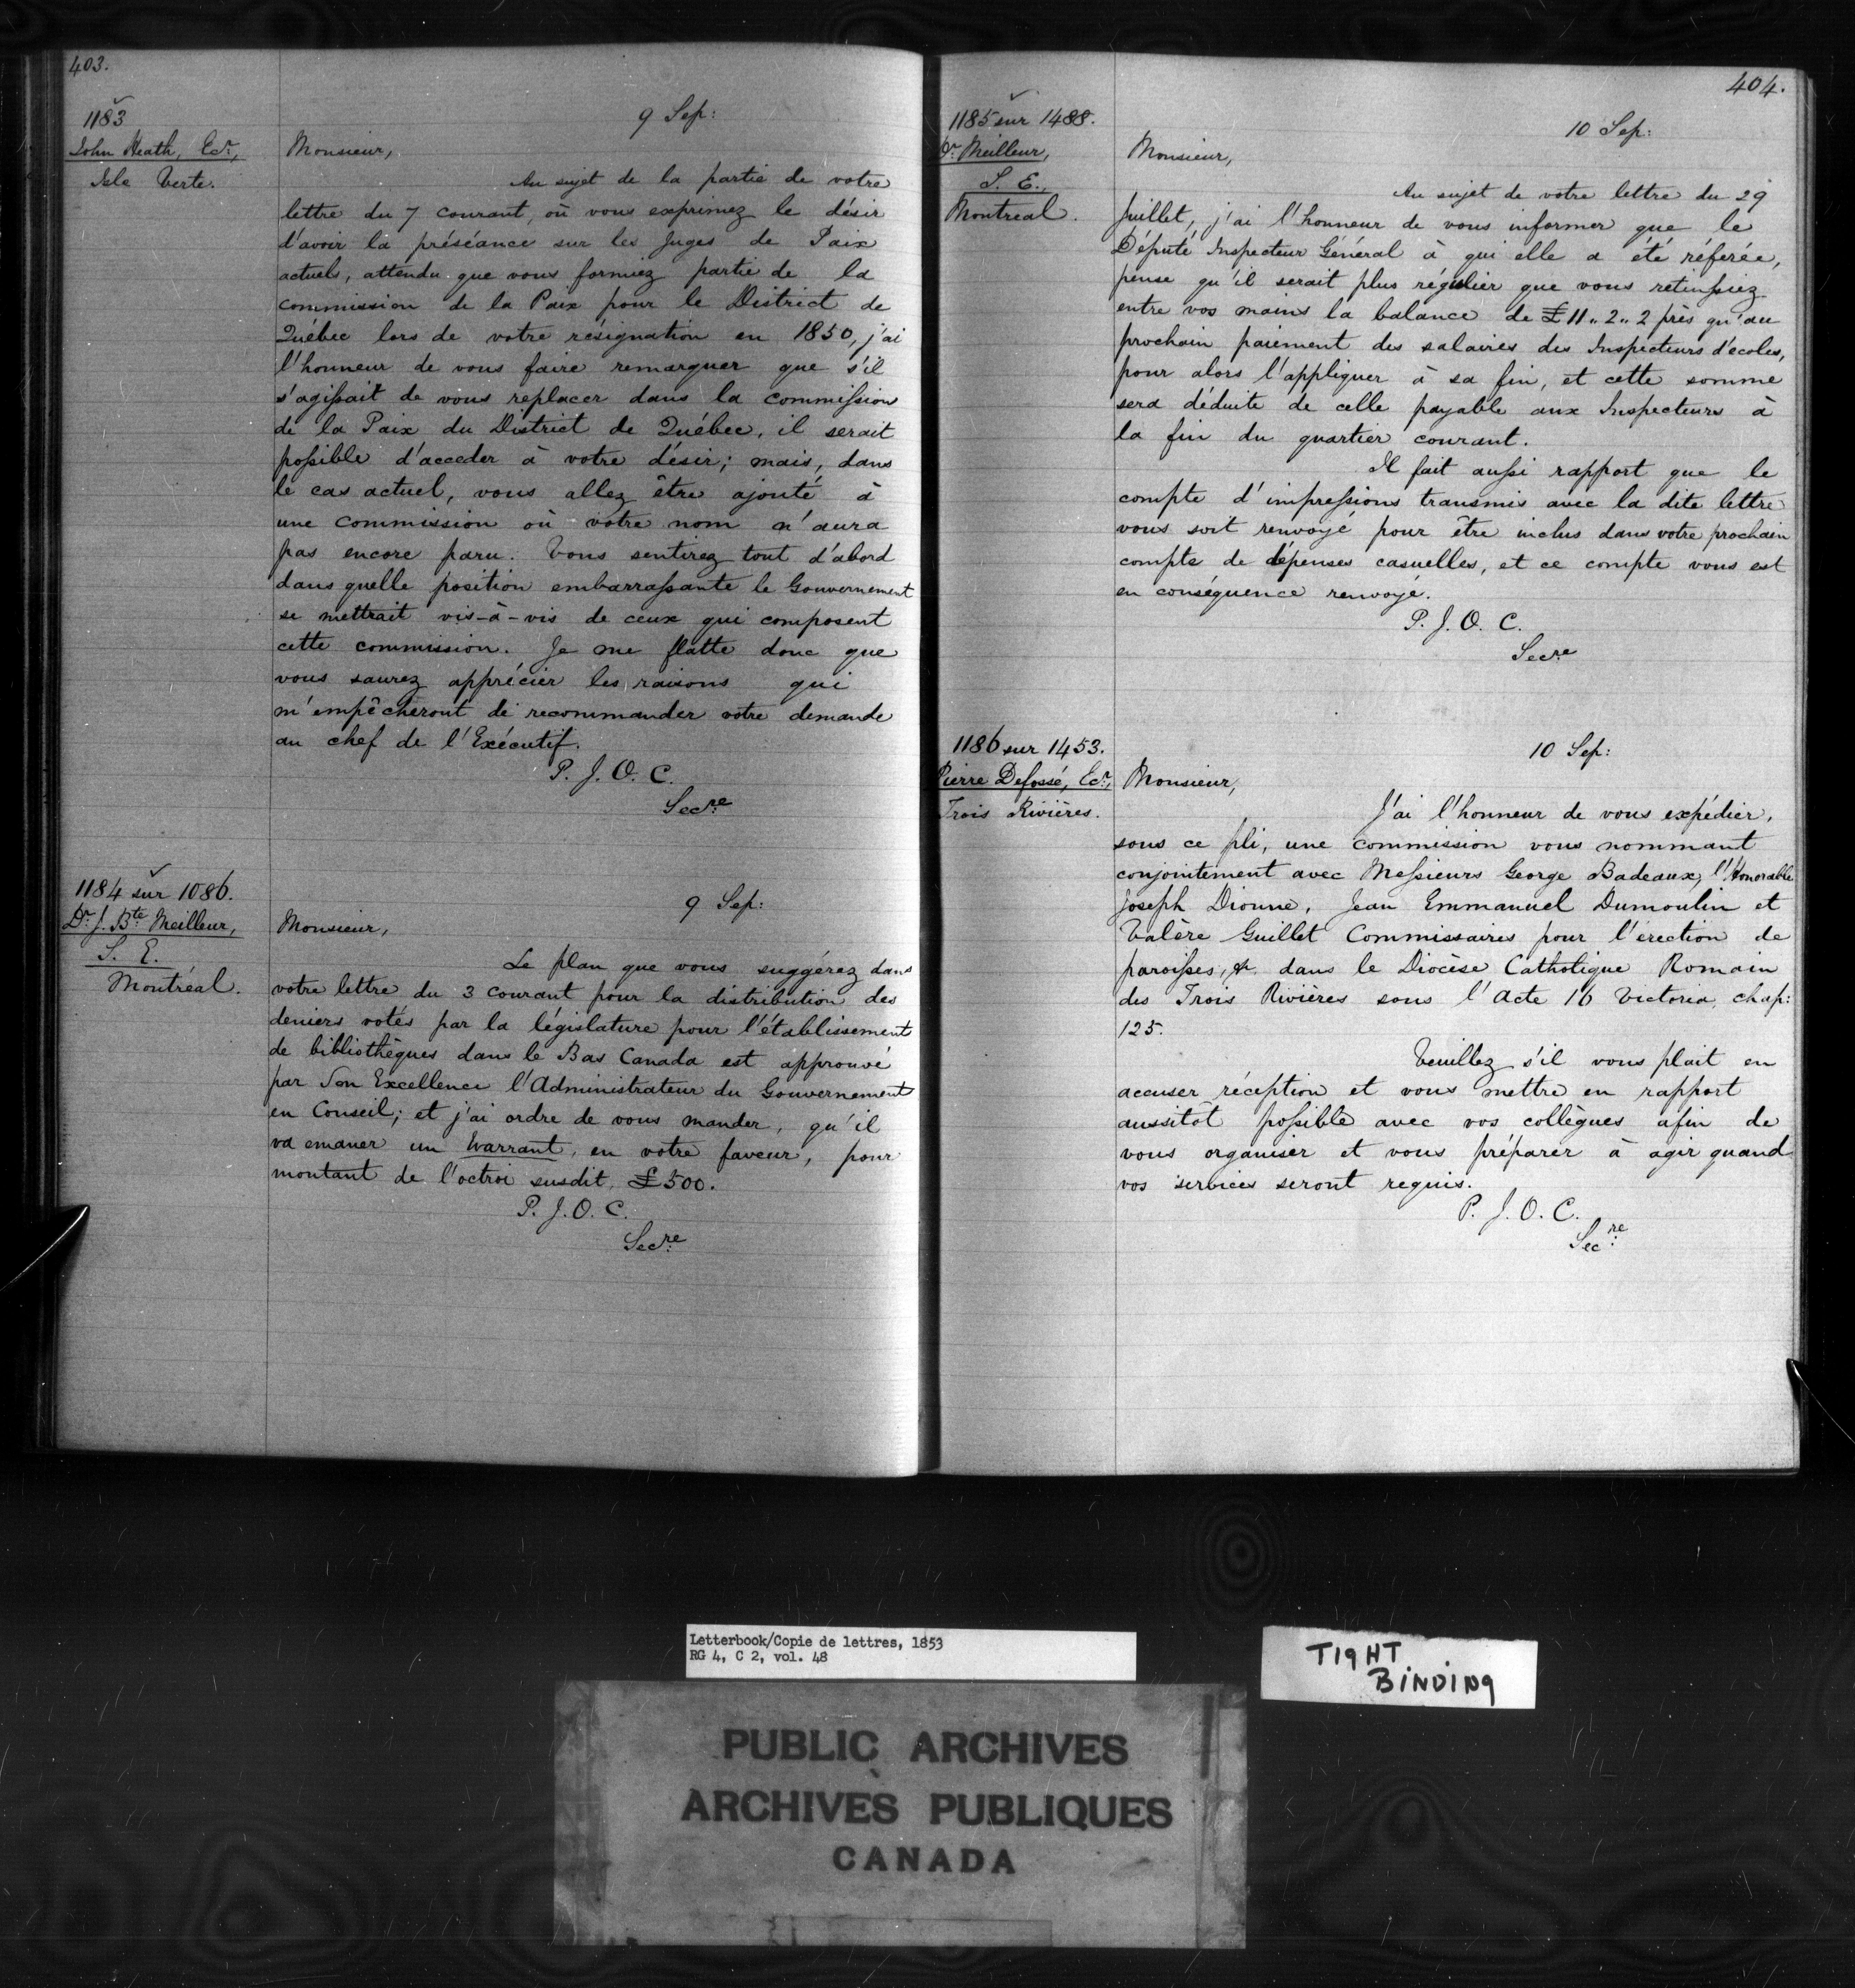 403.
1183
John Heath, Ecr.,
Isle Verte.
9 Sep:
Monsieur,
Au sujet de la partie de votre
lettre du 7 courant, où vous exprimez le désir
d'avoir la préséance sur les Juges de Paix
actuels, attendu que vous formiez partie de la
commission de la Paix pour le District de
Québec lors de votre résignation en 1850, j'ai
l'honneur de vous faire remarquer que s'il
s'agissait de vous replacer dans la commission
de la Paix du District de Québec, il serait
possible d'acceder à votre désir; mais, dans
le cas actuel, vous allez être ajouté à
une commission où votre nom n'aura
pas encore paru. Vous sentirez tout d'abord
dans quelle position embarrassante le Gouvernement
se mettrait vis-à-vis de ceux qui composent
cette commission. Je me flatte donc que
vous saurez apprécier les raisons qui
m'empêcheront de recommander votre demande
au chef de l'Exécutif.
P. J. O. C.
Secre
1184 sur 1086.
Dr. J. Bte Meilleur,
S. E.
Montréal.
9 Sep:
Monsieur,
Le plan que vous suggérez dans
votre lettre du 3 courant pour la distribution des
deniers votés par la législature pour l'établissement
de bibliothèques dans le Bas Canada est approuvé
par Son Excellence l'Administrateur du Gouvernement
en Conseil; et j'ai ordre de vous mander, qu'il
va emaner un Warrant, en votre faveur, pour
montant de l'octroi susdit, £500.
P. J. O. C.
Secre
404.
1185 sur 1488.
Dr. Meilleur,
S. E.,
Montreal.
10 Sep:
Monsieur,
Au sujet de votre lettre du 29
Juillet, j'ai l'honneur de vous informer que le
Député Inspecteur Général à qui elle a été référée,
pense qu'il serait plus régulier que vous retinssiez
entre vos mains la balance de £11"2"2 près qu'au
prochain paiement des salaires des Inspecteurs d'écoles,
pour alors l'appliquer à sa fin, et cette somme
sera déduite de celle payable aux Inspecteurs à
la fin du quartier courant.
Il fait aussi rapport que le
compte d'impressions transmis avec la dite lettre
vous soit renvoyé pour être inclus dans votre prochain
compte de dépenses casuelles, et ce compte vous est
en conséquence renvoyé.
P. J. O. C.
Secre
1186 sur 1453.
Pierre Defossé, Ecr.,
Trois Rivières.
10 Sep:
Monsieur,
J'ai l'honneur de vous expédier,
sous ce pli, une commission vous nommant
conjointement avec Messieurs George Badeaux, l'Honorable
Joseph Dionne, Jean Emmanuel Dumoulin et
Valère Guillet Commissaires pour l'érection de
paroisses, &. dans le Diocèse Catholique Romain
des Trois Rivières sous l'Acte 16 Victoria, chap:
125.
Veuillez s'il vous plait en
accuser réception et vous mettre en rapport
aussitot possible avec vos collègues afin de
vous organiser et vous préparer à agir quand
vos services seront requis.
P. J. O. C.
Secre
Letterbook/Copie de lettres, 1853
RG 4, C 2, vol. 48
TIGHT
BINDING
PUBLIC ARCHIVES
ARCHIVES PUBLIQUES
CANADA